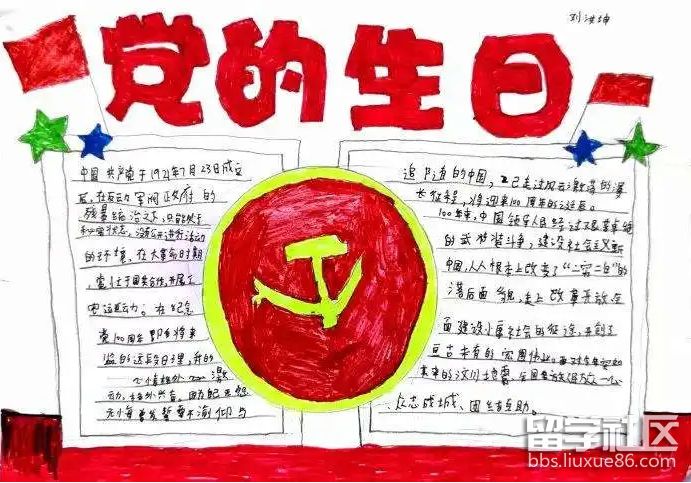 刘洪坤
党的生日
中国共产党于1921年7月23日成立
后,在反动军阀政府的
残暴统治之下,只能处于
秘密状态,没有公开进行活动
的环境,在大革命时期
党
农运动。在纪念
党100周年即将来
临的这段日子里,我的
心情格外激
动,格外兴奋。
的中国,已走过风云激荡的漫
长征程,将迎来100周年的诞辰。
100年来,中国领导人民经过艰苦卓绝
的武装斗争,建设社会主义新
中国,人人根本上改变了“一穷二白”的
落后面貌,走上改革开放,全
面建设小康社会的征途,开创了
亘古未有的宏图伟业。
来的汶川地震,
众志成城、团结互助。
留学社区
bbs.liuxue86.com